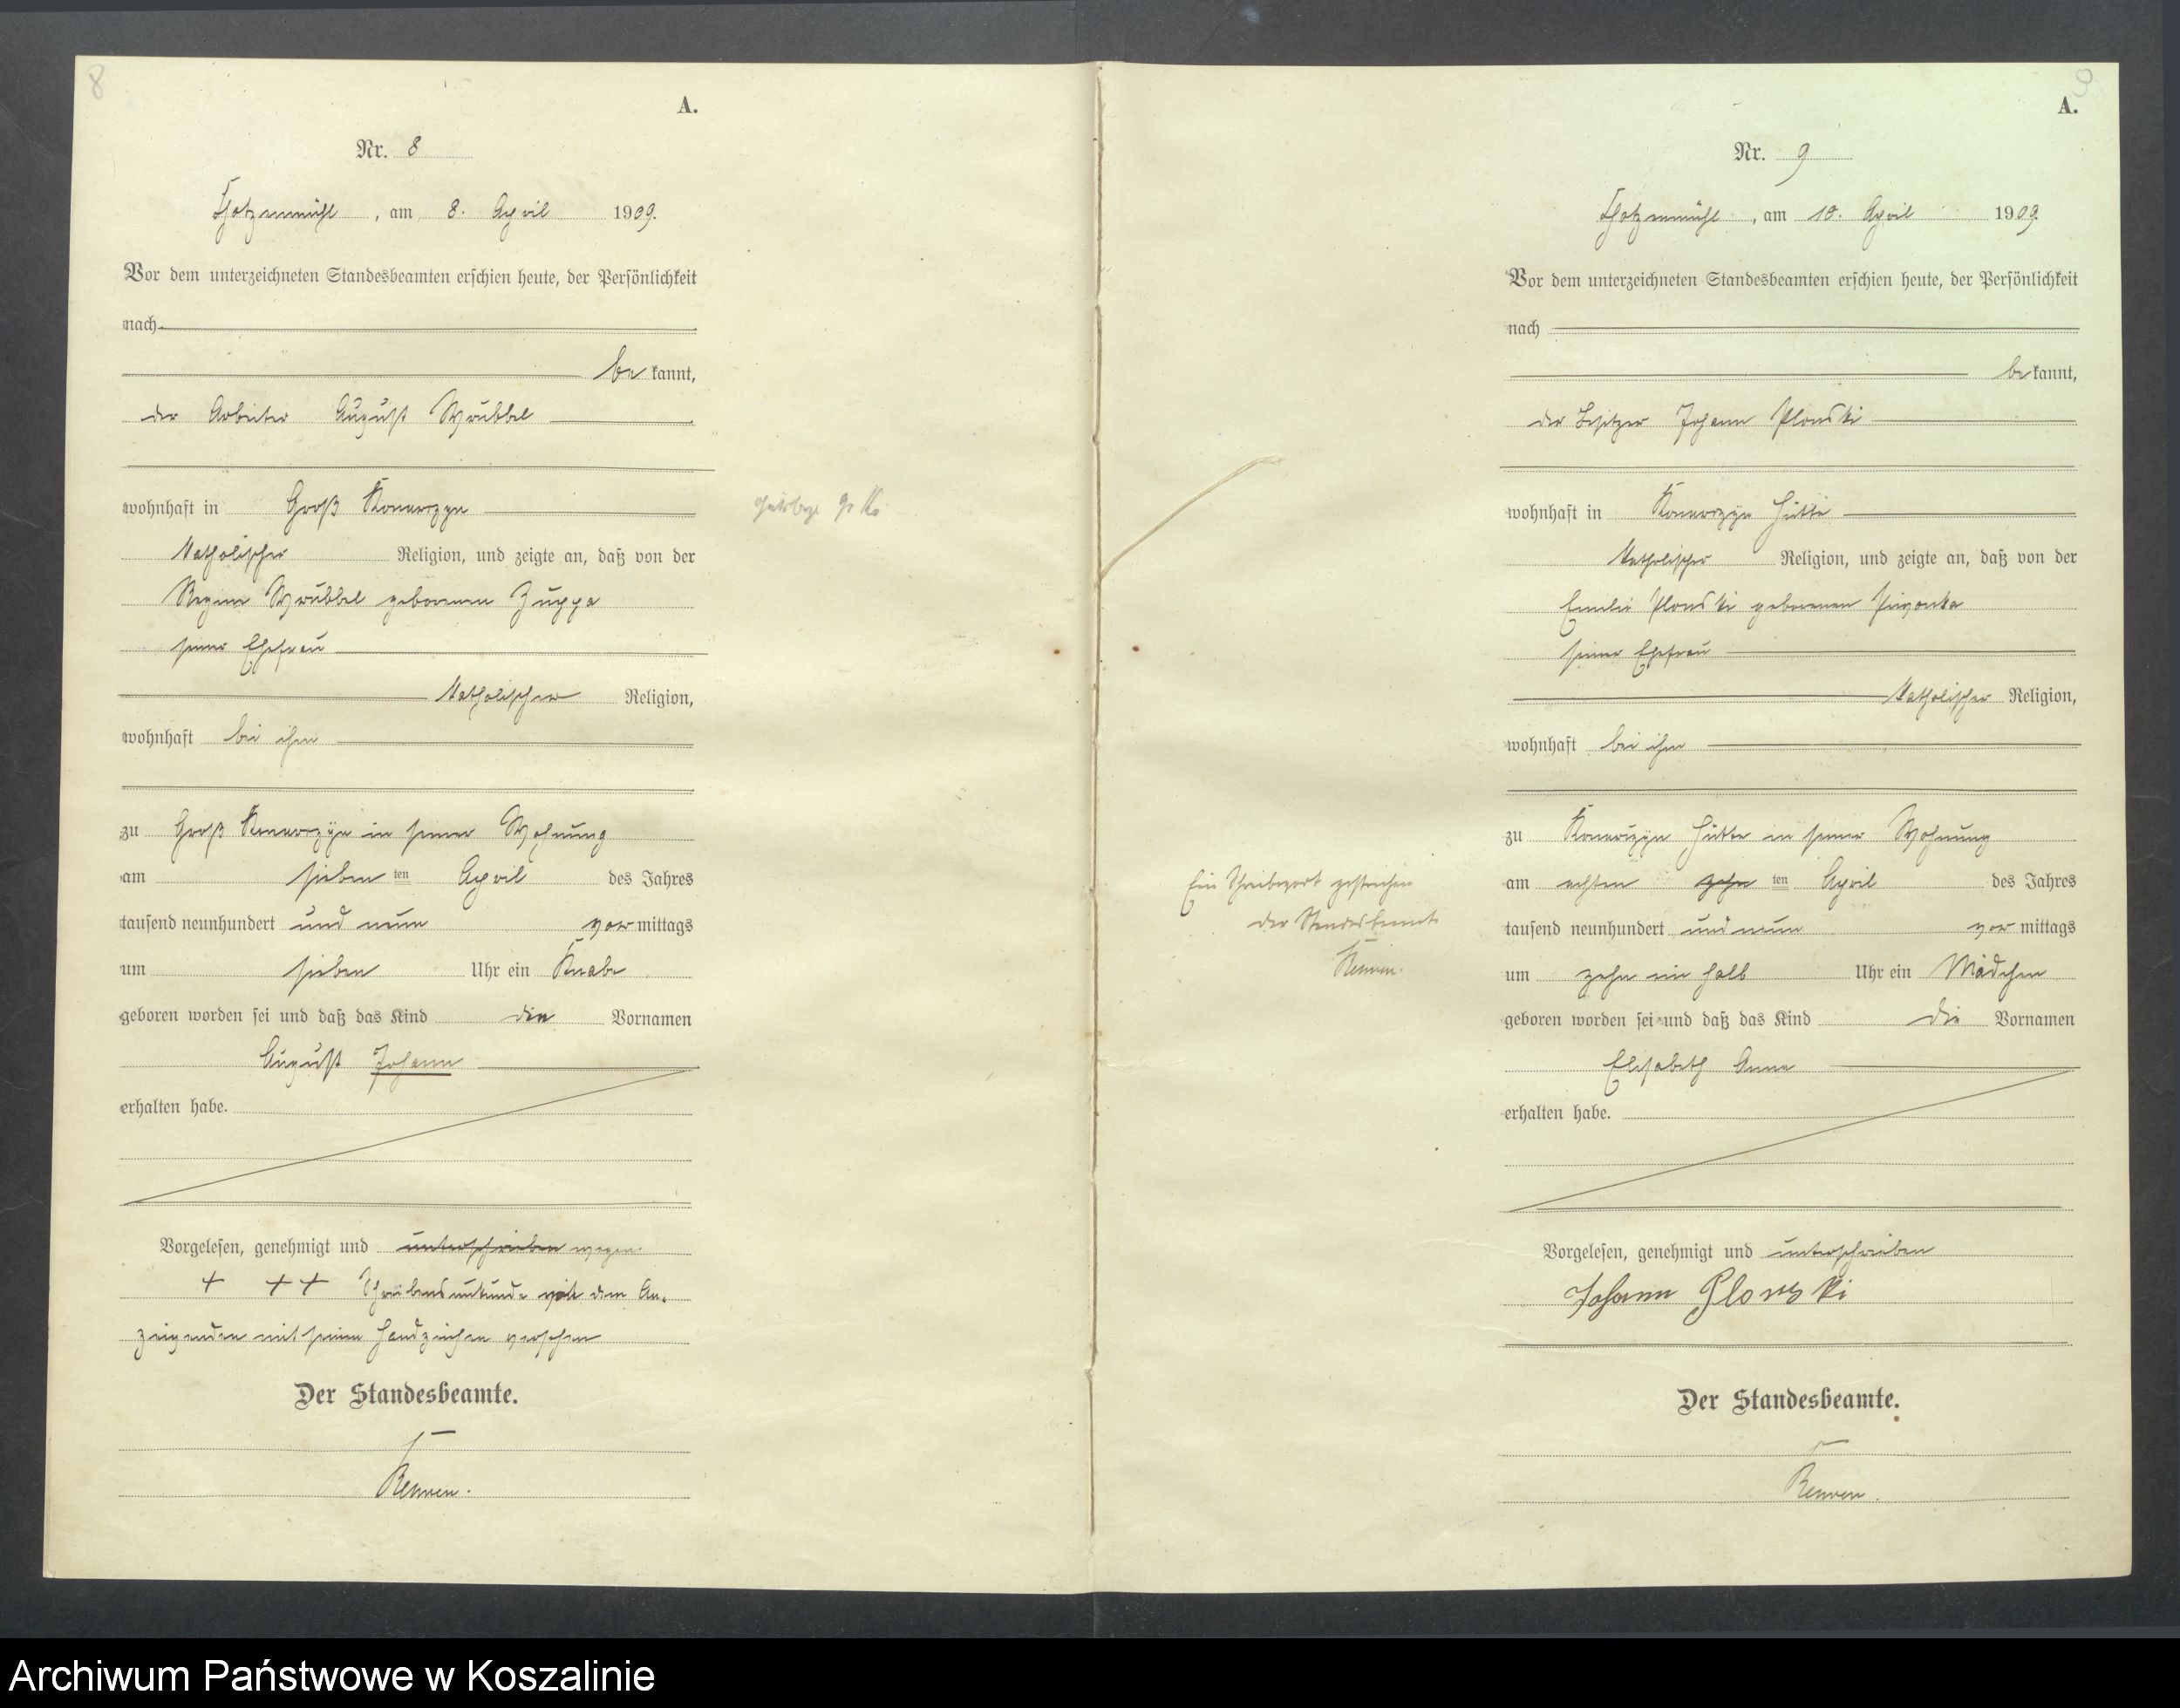 8
A.
Nr. 8
Flötzenmühl, am 8. April 1909.
Vor dem unterzeichneten Standesbeamten erschien heute, der Persönlichkeit
nach
be kannt,
der Arbeiter August Wrubbel
wohnhaft in Groß Konarczyn
katholischer Religion, und zeigte an, daß von der
Regina Wrubbel geborenen Zuppa
seiner Ehefrau
katholischer Religion,
wohnhaft bei ihm
zu Groß Konarczyn in seiner Wohnung
am sieben ten April des Jahres
tausend neunhundert und neun vor mittags
um sieben Uhr ein Knabe
geboren worden sei und daß das Kind die Vornamen
August Johann
erhalten habe.
Vorgelesen, genehmigt und unterschrieben wegen
+ ++ Schreibensunkunde von dem An-
zeigenden mit seinem Handzeichen versehen
Der Standesbeamte.
9
A.
Nr. 9
Flötzenmühl, am 10. April 1909
Vor dem unterzeichneten Standesbeamten erschien heute, der Persönlichkeit
nach
be kannt,
der Besitzer Johann Plonski
wohnhaft in Konarczyn Hütte
katholischer Religion, und zeigte an, daß von der
Emilie Plonski geborenen Piwonka
seiner Ehefrau
katholischer Religion,
wohnhaft bei ihm
zu Konarczyn Hütte in seiner Wohnung
am achten zehn ten April des Jahres
tausend neunhundert und neun vor mittags
um zehn ein halb Uhr ein Mädchen
geboren worden sei und daß das Kind die Vornamen
Elisabeth Anna
erhalten habe.
Ein Schreibwort gestrichen
der Standesbeamte
Vorgelesen, genehmigt und unterschrieben
Johann Plonski
Der Standesbeamte.
Archiwum Państwowe w Koszalinie